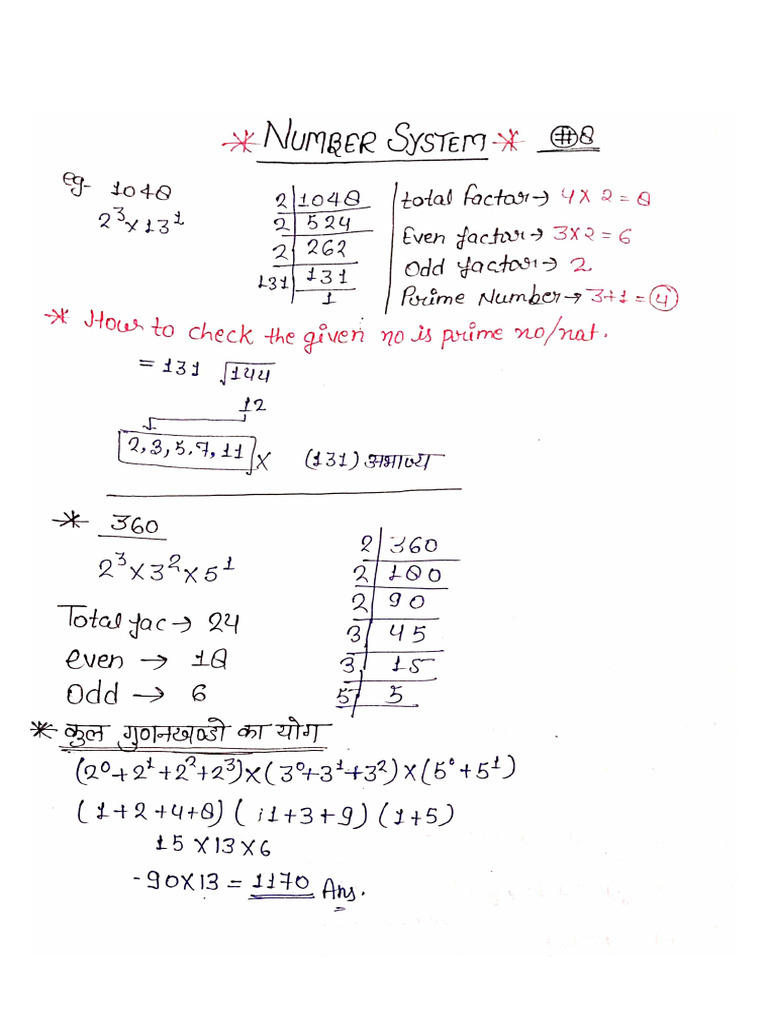 * NUMBER SYSTEM * #8
eg- 1048
2³x131
2 | 1048
2 | 524
2 | 262
131 | 131
1
total factor→ 4x2=8
Even factor→ 3x2=6
Odd factor→ 2
Prime Number→ 3+1=4
* How to check the given no is prime no/not.
= 131 √144
12
2,3,5,7,11 x (131) अभाज्य
* 360
2³x3²x5¹
Total fac→ 24
even → 18
Odd → 6
2 | 360
2 | 180
2 | 90
3 | 45
3 | 15
5 | 5
* कुल गुणनखण्डो का योग
(2⁰+2¹+2²+2³)x(3⁰+3¹+3²)x(5⁰+5¹)
(1+2+4+8) (1+3+9) (1+5)
15x13x6
-90x13 = 1170 Ans.